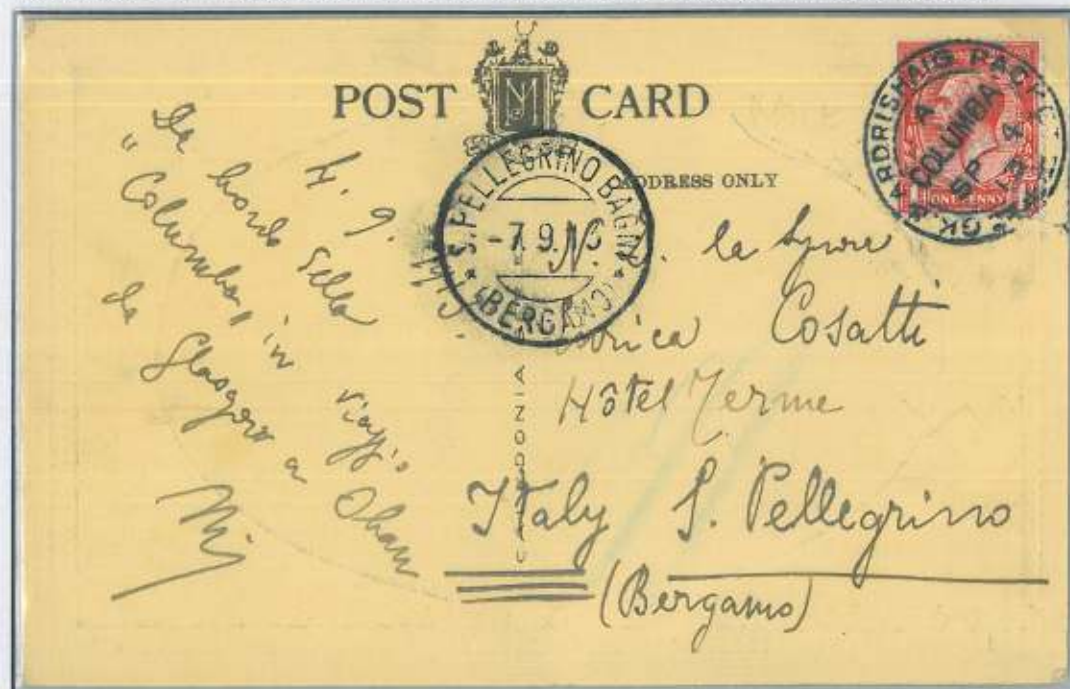 POST CARD
ADDRESS ONLY
ARDRISHAIG PACKET
A
COLUMBA
SP 4
ONE PENNY
S. PELLEGRINO BAGNI
(BERGAMO)
4. 9.
Da bordo della
"Columba" in viaggio
da Glasgow a Oban
Cosatti
Hôtel Terme
Italy S. Pellegrino
(Bergamo)